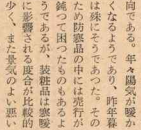 向である。年々陽気が暖か
くなるようであり、昨年暮
は殊にそうであつた。その
ため防寒品の中には売行が
鈍つて困つたものもあるよ
うであるが、装寝品は寒暖
に影響される度合が比較的
少く、また景気のよい悪い